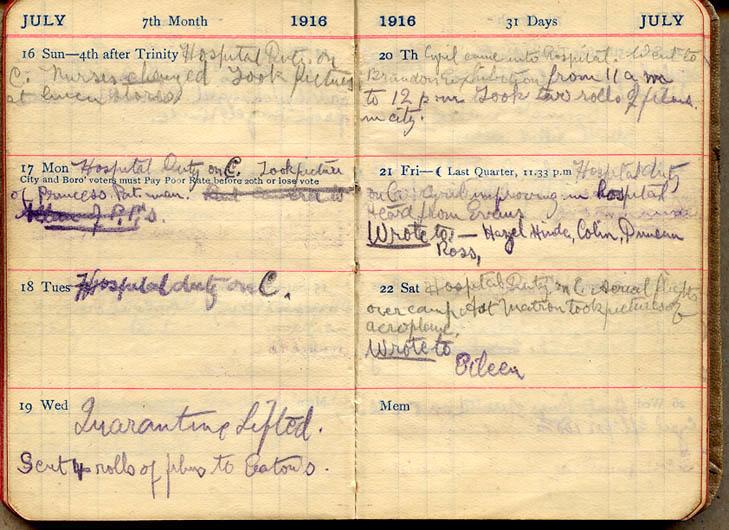 JULY 7th Month 1916
16 Sun—4th after Trinity Hospital Duty on
C. Nurses changed Took pictures
at linen stores
17 Mon Hospital Duty on C. Took picture
City and Boro' voters must Pay Poor Rate before 20th or lose vote
of Princess Pat man.
of P.P's.
18 Tues Hospital duty on C.
19 Wed Quarantine Lifted.
Sent 4 rolls of films to Eatons.
1916 31 Days JULY
20 Th Cyril came into Hospital. Went to
Brandon Exhibition from 11 a m
to 12 p.m. Took two rolls of films
in city.
21 Fri—☾ Last Quarter, 11.33 p.m Hospital duty
on C. Cyril improving in hospital
Heard from Evans
Wrote to:— Hazel Hinde, Colin, Duncan
Ross,
22 Sat Hospital Duty on C. aerial flights
over camp. Asst Matron took pictures of
aeroplane.
Wrote to
Eileen
Mem